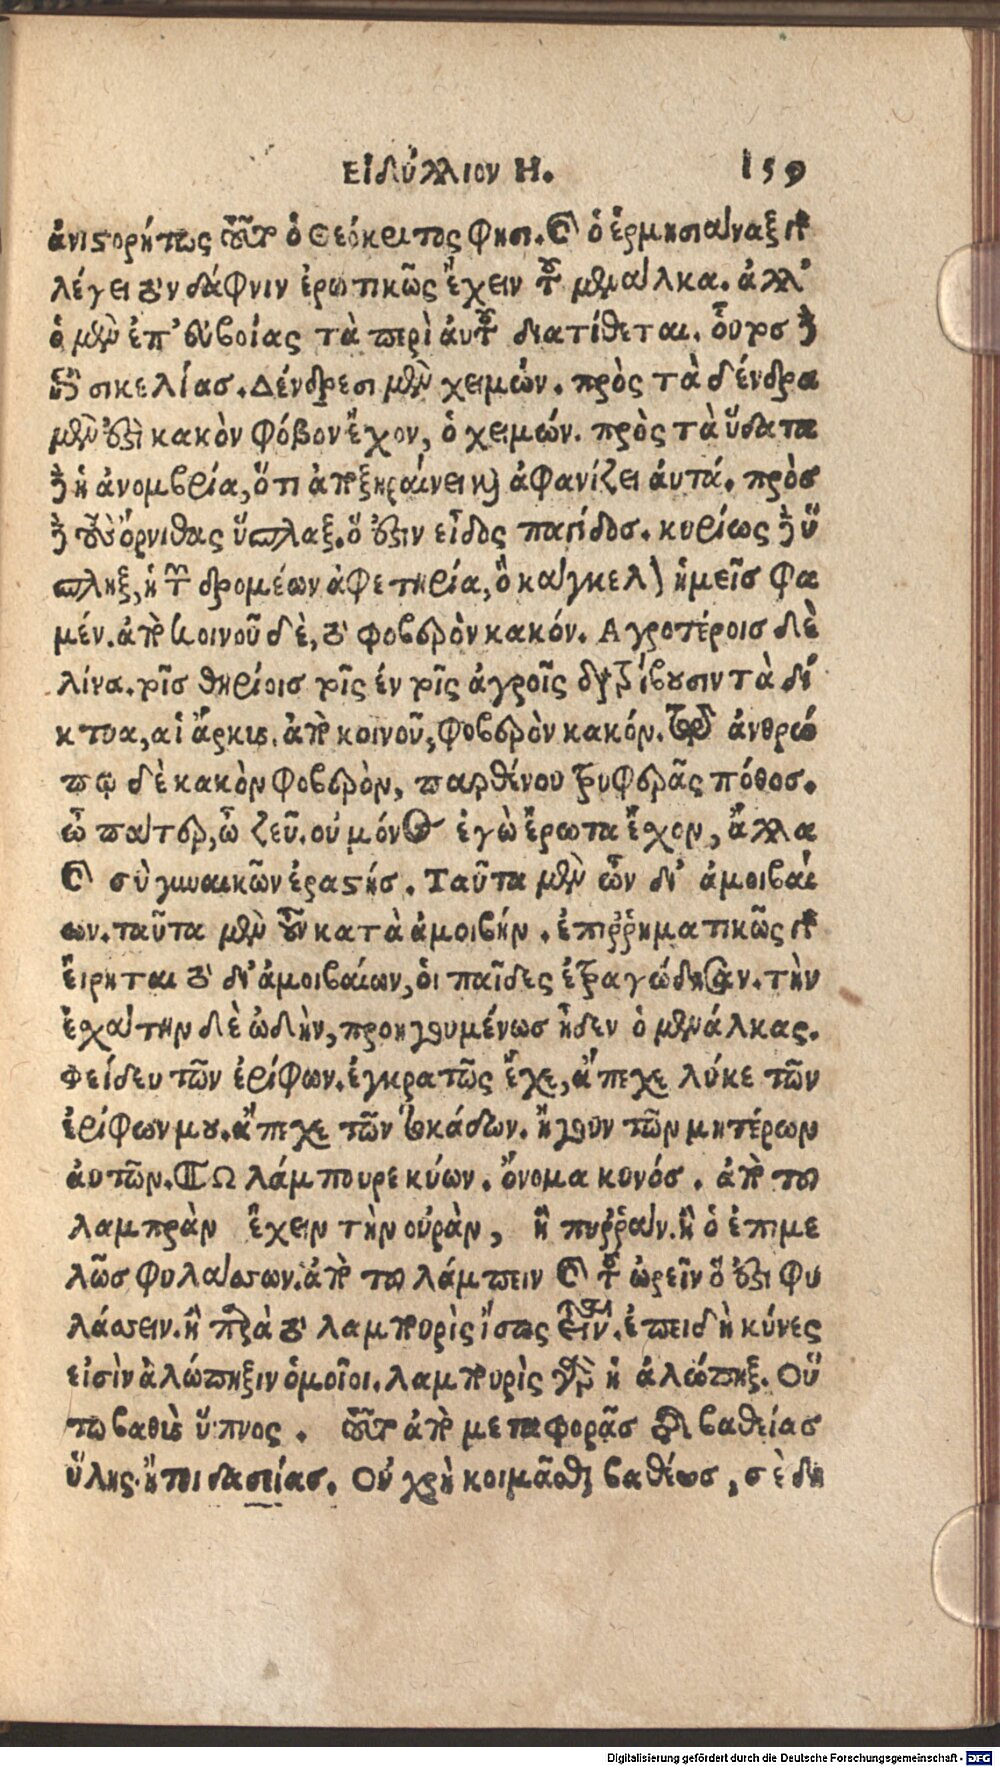 ΕΙΔΎΛΛΙΟΝ Η. 159
ἀνιστορήτως τοῦτο ὁ Θεόκριτος φησι. καὶ ὁ ἑρμησιάναξ
λέγει τὸν δάφνιν ἐρωτικῶς ἔχειν τοῦ μενάλκα. ἀλλ'
ὁ μὲν ἐπ' εὐβοίας τὰ περὶ αὐτοῦ διατίθεται. οὗτος δὲ
ἐπὶ σικελίας. Δένδρεσι μὲν χειμών. πρὸς τὰ δένδρα
μὲν ἐστὶ κακὸν φόβον ἔχον, ὁ χειμών. πρὸς τὰ ὕδατα
δὲ ἡ ἀνομβρία, ὅτι ἀποξηραίνει καὶ ἀφανίζει ἀυτά. πρὸς
δὲ τοὺς ὄρνιθας ὕσπλαξ. ὅ ἐστιν εἶδος παγίδος. κυρίως δὲ ὕ
σπληξ, ἡ τῶν δρομέων ἀφετηρία, ὃ κάγκελ) ἡμεῖς φα
μέν. ἀπὸ κοινοῦ δὲ, τὸ φοβερὸν κακόν. Αγροτέροις δὲ
λίνα. τοῖς θηρίοις τοῖς ἐν τοῖς ἀγροῖς διατρίβουσιν τὰ δί
κτυα, αἱ ἄρκυς. ἀπὸ κοινοῦ, φοβερὸν κακόν. ἀνθρώ
πῳ δὲ κακὸν φοβερὸν, παρθένου τρυφερᾶς πόθος.
ὦ πάτερ, ὦ ζεῦ. οὐ μόνος ἐγὼ ἔρωτα ἔχον, ἄλλα
καὶ σὺ γυναικῶν ἐραστής. Ταῦτα μὲν ὦν δι' ἀμοιβαί
ων. ταῦτα μὲν οὖν κατὰ ἀμοιβήν. ἐπιρρηματικῶς
εἴρηται τὸ δι' ἀμοιβαίων, οἱ παῖδες ἐτραγώδησαν. τὴν
ἐσχάτην δὲ ὠδὴν, προηγουμένως ἦδεν ὁ μενάλκας.
Φείδευ τῶν ἐρίφων. ἐγκρατῶς ἔχε, ἄπεχε λύκε τῶν
ἐρίφων μου. ἄπεχε τῶν τοκάδων. ἤγουν τῶν μητέρων
ἀυτῶν. Ω λάμπουρε κύων. ὄνομα κυνός. ἀπὸ του
λαμπρὰν ἔχειν τὴν οὐρὰν, ἢ πυρράν. ἢ ὁ ἐπιμε
λῶς φυλάσσων. ἀπὸ του λάμπειν καὶ τοῦ ὠρεῖν ὅ ἐστι φυ
λάσσειν. ἢ παρὰ τὸ λαμπουρὶς ἴσως ἐστιν. ἐπειδὴ κύνες
εἰσὶν ἀλώπηξιν ὁμοῖοι. λαμπουρὶς γὰρ ἡ ἀλώπηξ. Οὕ
τω βαθὺς ὕπνος. τοῦτο ἀπὸ μεταφορᾶς τῆς βαθείας
ὕλης ἤτοι δασείας. Οὐ χρὴ κοιμᾶσθαι βαθέως, σὲ δη
Digitalisierung gefördert durch die Deutsche Forschungsgemeinschaft - DFG